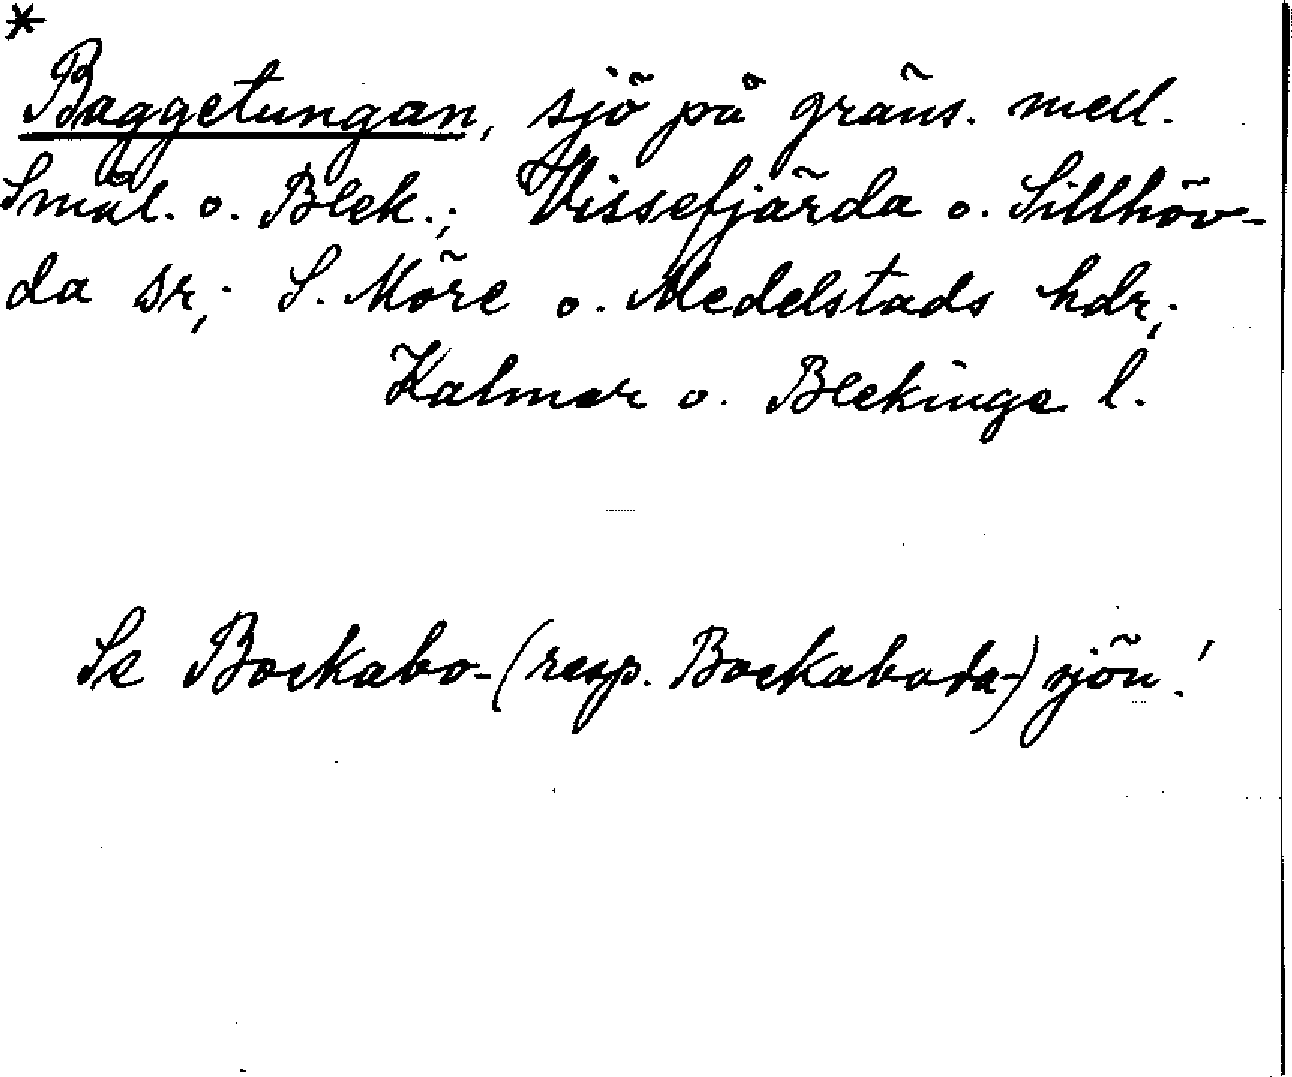 *
Baggetungan, sjö på gräns. mell.
Smål. o. Blek.; Vissefjärda o. Sillhöv-
da sr; S. Möre o. Medelstads hdr;
Kalmar o. Blekinge l.
Se Bockabo- (resp. Bockaboda-) sjön!